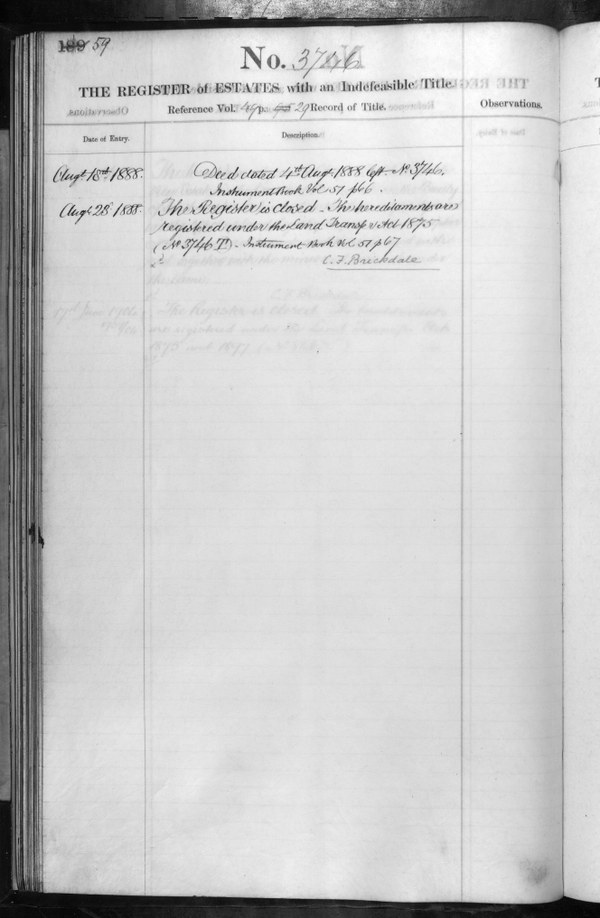 189 59
No. 3746
THE REGISTER of ESTATES with an Indefeasible Title.
Reference Vol. 49 p. 29 Record of Title.
Observations.
Date of Entry.
Description.
Augt 18th 1888. Deed dated 4th Augt 1888 Cft. No 3746.
Instrument Book Vol 51 p 66.
Augt 28 1888. The Register is closed. The hereditaments are
registered under the Land Transfer Act 1875
(No 3746 T). Instrument Book Vol 51 p 67
C. F. Brickdale